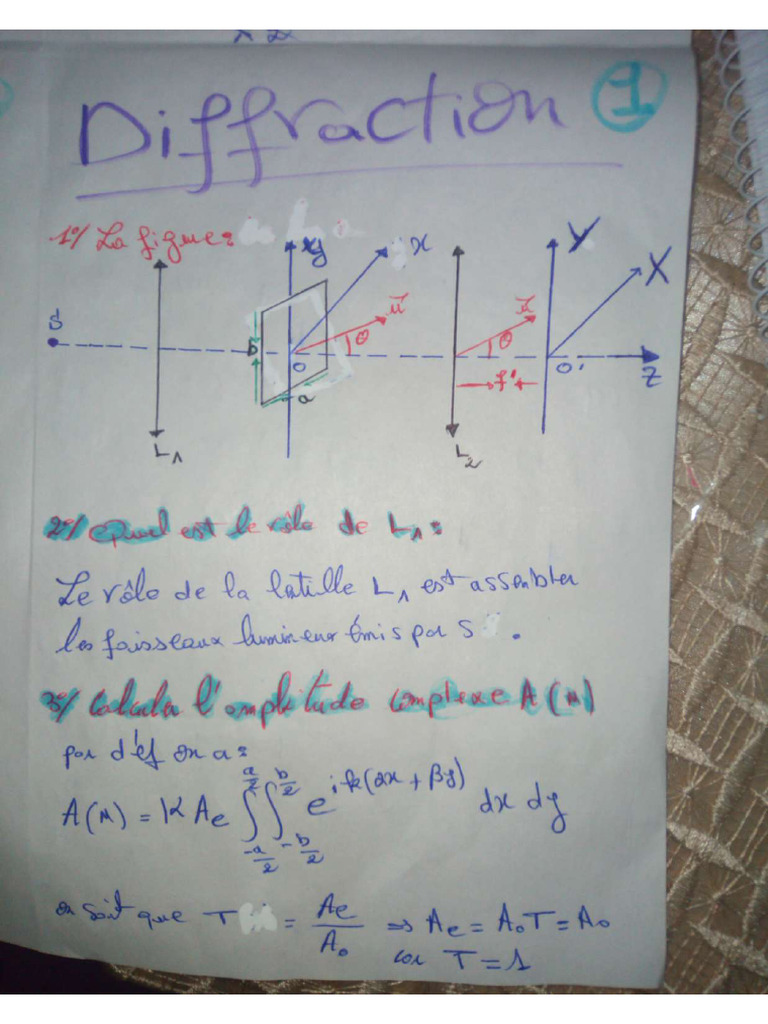 Diffraction 1
1°/ La figure:
y x Y X
S b O a u θ u θ f' O' Z
L1 L2
2°/ Quel est le rôle de L1:
Le rôle de la latille L1 est assembler
les faisceaux lumineux émis par S.
3°/ Calculer l'amplitude complexe A(M)
par déf on a:
A(M) = K Ae ∫∫ e^{ik(αx + βy)} dx dy
a/2 b/2
-a/2 -b/2
on sait que T = Ae/A0 ⇒ Ae = A0T = A0
car T = 1